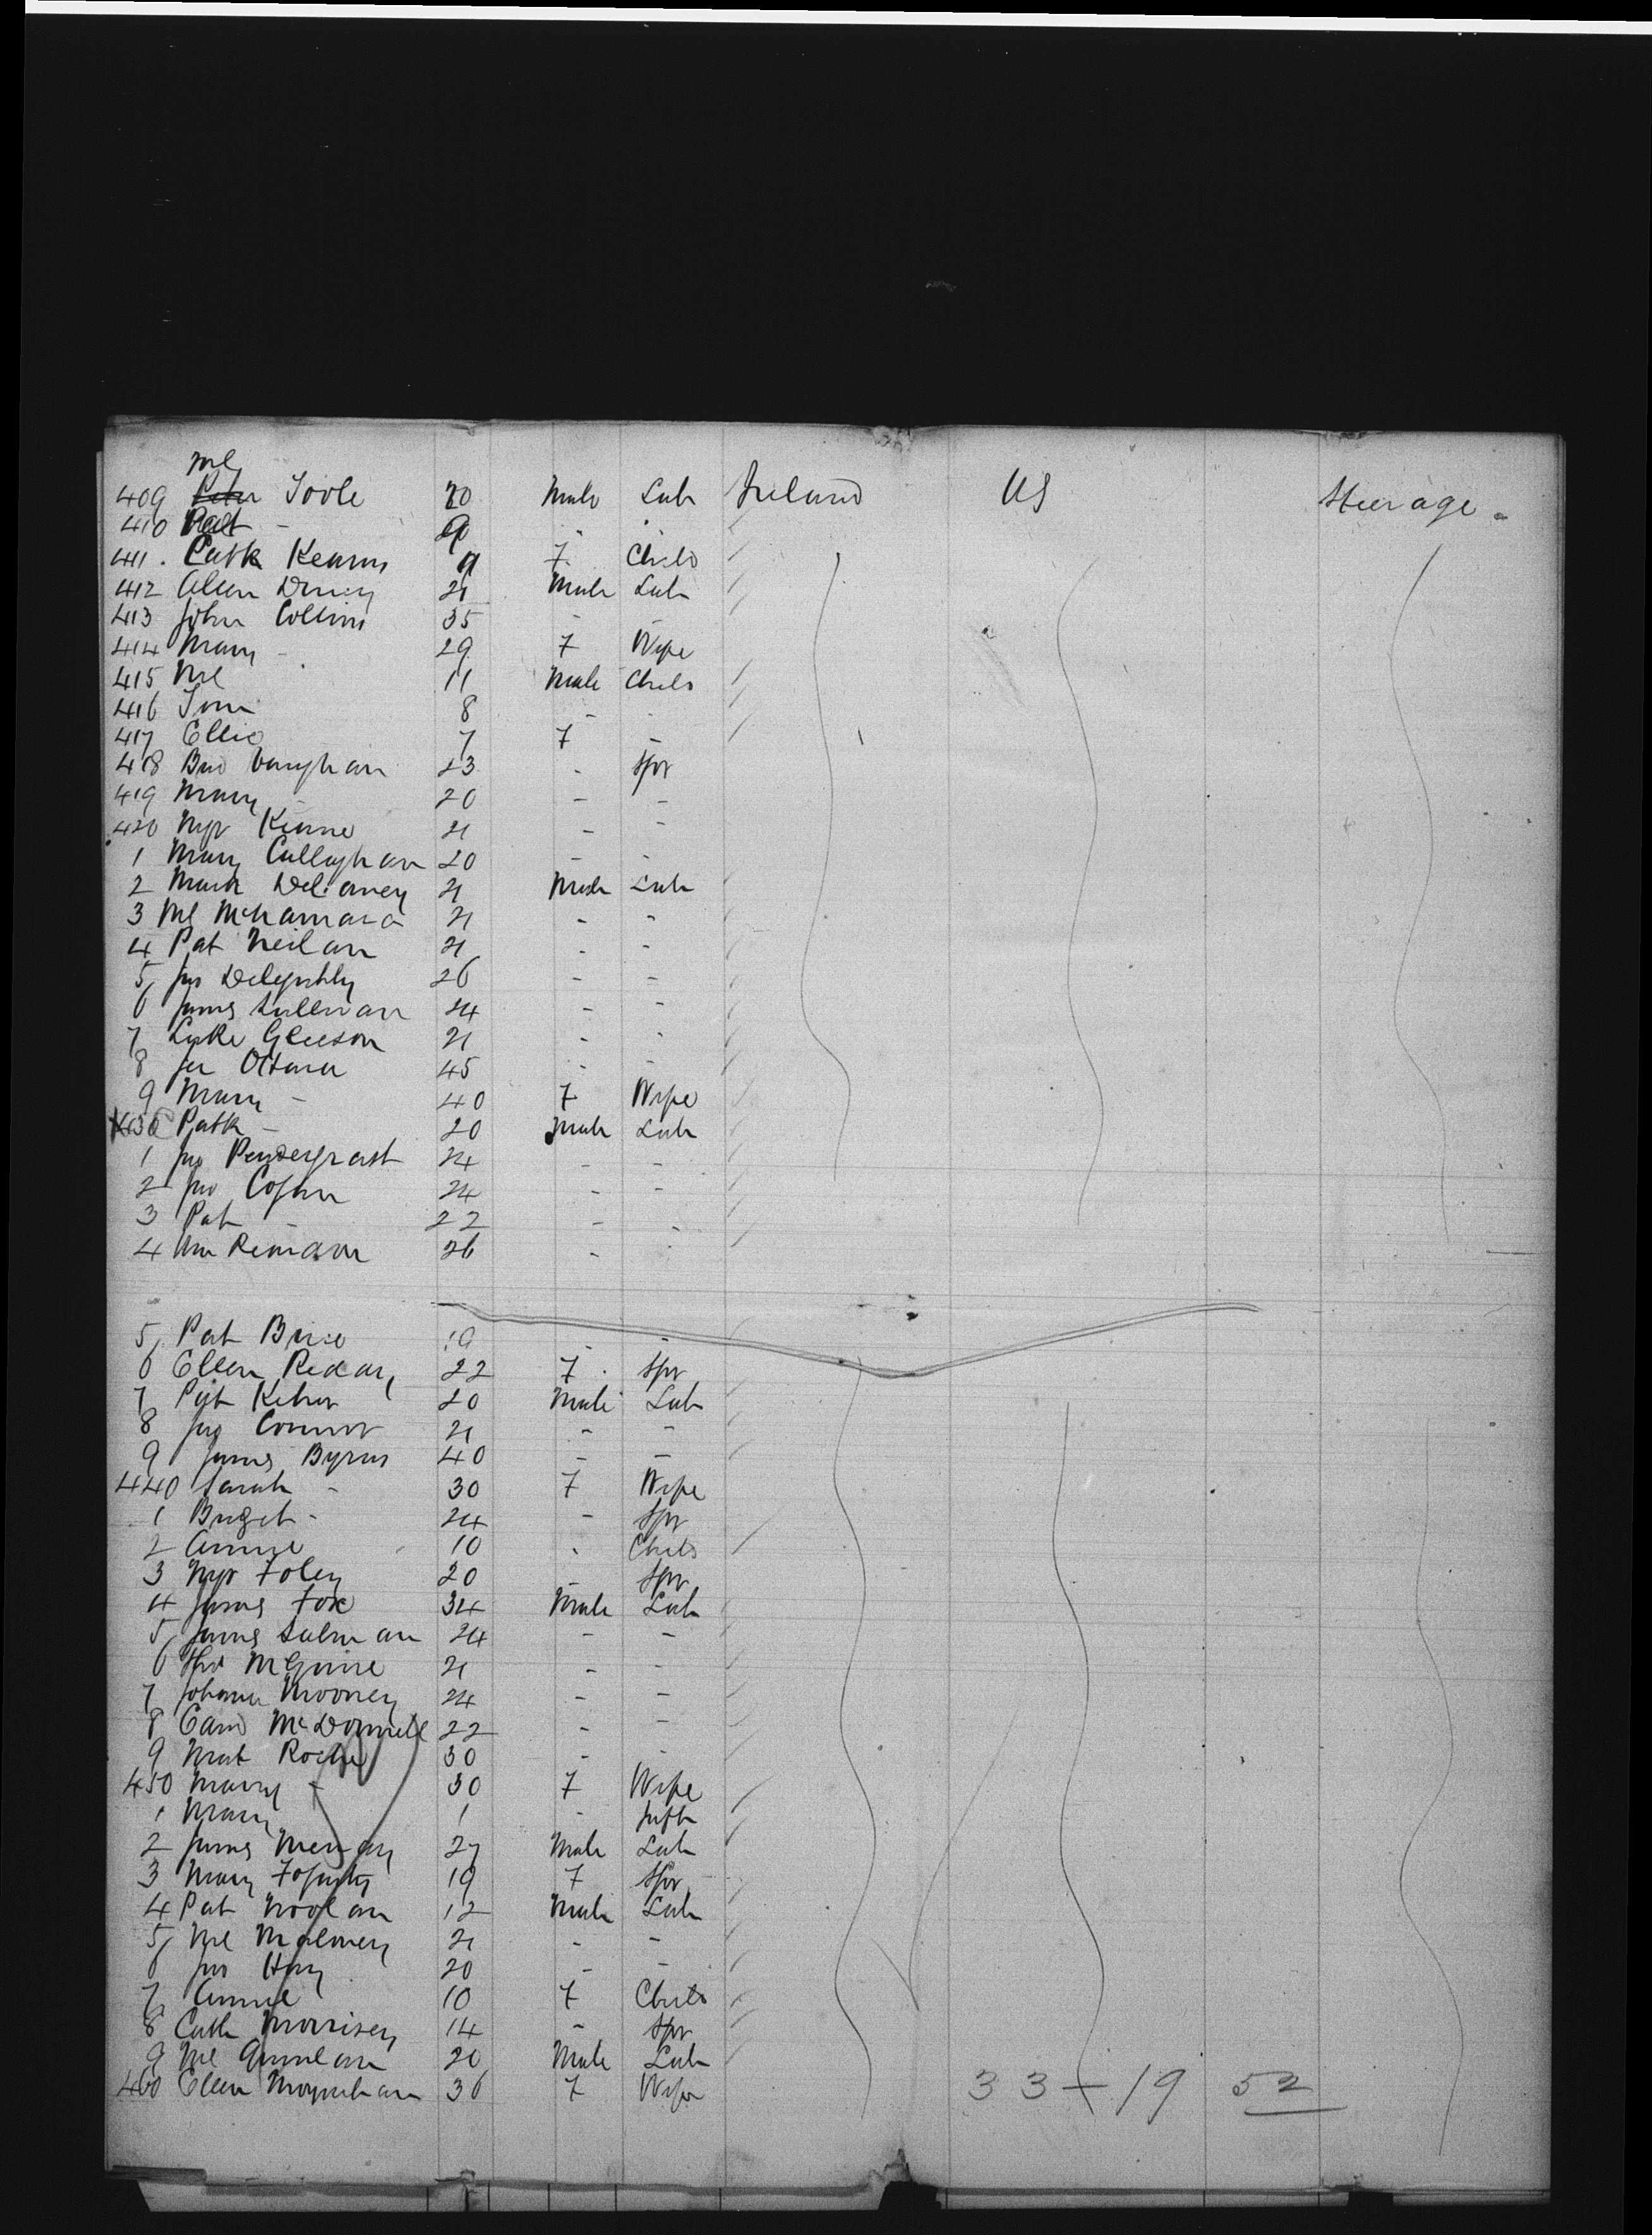 Ml
409 Peter Toole 20 Male Lab Ireland US Steerage
410 Pat - 9 - -
411 . Cath Kearns 9 F Child
412 Allen 21 Male Lab
413 John Collins 35 - -
414 Mary - 29 F Wife
415 Ml 11 Male Child
416 Tom 8 - -
417 Ellie 7 F -
418 Brd Vaughan 23 - Spr
419 Mary - 20 - -
420 Mgt Kinne 21 - -
1 Mary Callaghan 20 - -
2 Mark Delaney 21 Male Lab
3 Ml McNamara 21 - -
4 Pat Neilan 21 - -
5 Jno 26 - -
6 James Sullivan 24 - -
7 Luke Gleeson 21 - -
8 Jer OHara 45 - -
9 Mary - 40 F Wife
430 Patk - 20 Male Lab
1 Jno Pendergrast 24 - -
2 Jno Cogan 24 - -
3 Pat - 22 - -
4 Wm 26 - -
5 Pat 19 - -
6 Ellen 22 F Spr
7 Pat 20 Male Lab
8 Jno Connor 21 - -
9 James Byrns 40 - -
440 Sarah - 30 F Wife
1 Bridget - 24 - Spr
2 Annie 10 - Child
3 Mgt Foley 20 - Spr
4 James Fox 34 Male Lab
5 James 24 - -
6 Thos McGuire 21 - -
7 Mooney 24 - -
8 Edwd McDonnell 22 - -
9 Mat Roche 30 - -
450 Mary - 30 F Wife
1 Mary 1 - Inft
2 James 27 Male Lab
3 Mary Fogarty 19 F Spr
4 Pat Noolan 12 Male Lab
5 Ml 21 - -
6 Jno Hoey 20 - -
7 Annie 10 F Child
8 Cath Morrisey 14 - Spr
9 Ml 20 Male Lab
460 Ellen Moynihan 36 F Wife 33 + 19 52